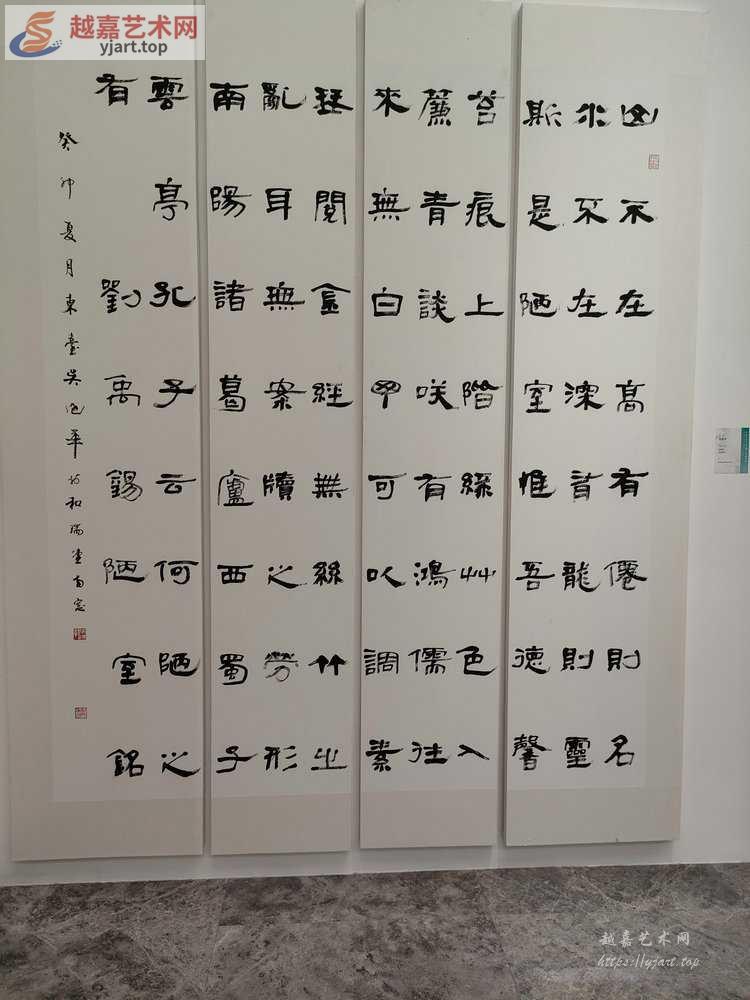 越嘉艺术网
yjart.top
山不在高有僊則名
水不在深有龍則靈
斯是陋室惟吾德馨
苔痕上階綠艸色入
簾青談咲有鴻儒往
來無白甲可以調素
琴閱金經無絲竹之
亂耳無案牘之勞形
南陽諸葛廬西蜀子
雲亭孔子云何陋之
有 劉禹錫陋室銘
癸卯夏月東臺吳 於和瑞堂南窗
越嘉艺术网
https://yjart.top